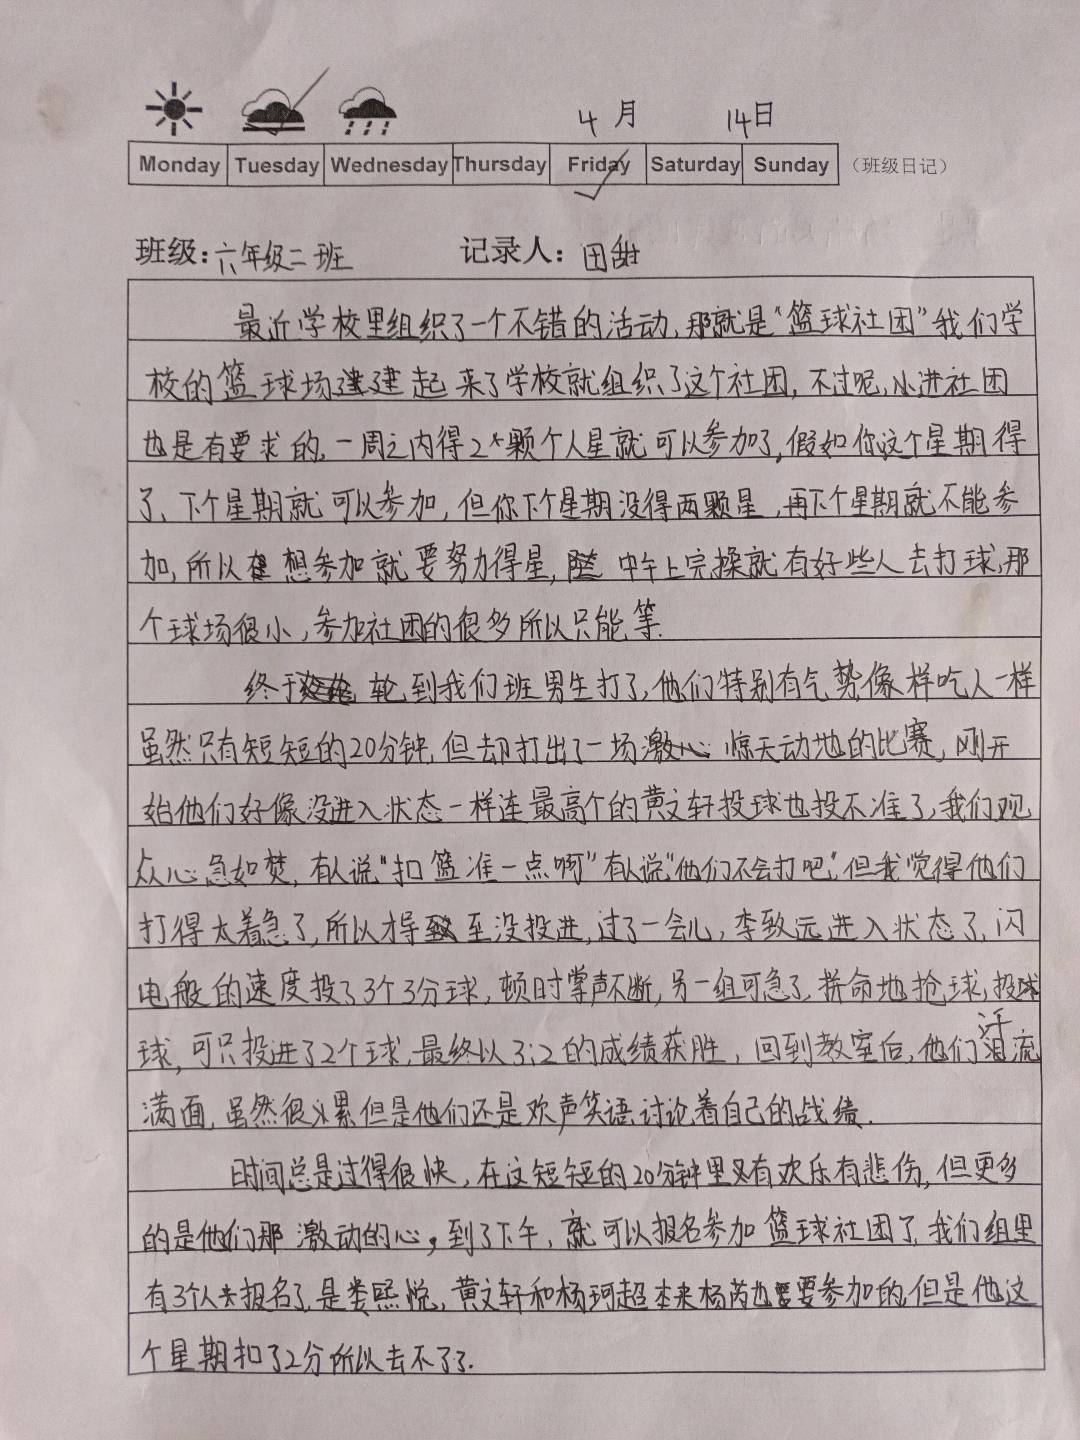 4月 14日
Monday Tuesday Wednesday Thursday Friday Saturday Sunday （班级日记）
班级：六年级二班 记录人：田甜
最近学校里组织了一个不错的活动，那就是“篮球社团”我们学
校的篮球场建起来了学校就组织了这个社团，不过呢，进社团
也是有要求的，一周之内得2颗个人星就可以参加了，假如你这个星期得
了，下个星期就可以参加，但你下个星期没得两颗星，再下个星期就不能参
加，所以想参加就要努力得星，中午上完操就有好些人去打球，那
个球场很小，参加社团的很多所以只能等．
终于轮到我们班男生打了，他们特别有气势像样吃人一样
虽然只有短短的20分钟，但却打出了一场激心惊天动地的比赛，刚开
始他们好像没进入状态一样连最高个的黄文轩投球也投不准了，我们观
众心急如焚，有人说“扣篮准一点啊”有人说“他们不会打吧”，但我觉得他们
打得太着急了，所以才导至没投进，过了一会儿，李致远进入状态了，闪
电般的速度投了3个3分球，顿时掌声不断，另一组可急了，拼命地抢球，投
球，可只投进了2个球，最终以3:2的成绩获胜，回到教室后，他们汗流
满面，虽然很累但是他们还是欢声笑语，讨论着自己的战绩．
时间总是过得很快，在这短短的20分钟里又有欢乐有悲伤，但更多
的是他们那激动的心，到了下午，就可以报名参加篮球社团了，我们组里
有3个人去报名了，是娄熙悦，黄文轩和杨珂超本来杨芮也要参加的，但是他这
个星期扣了2分所以去不了了．